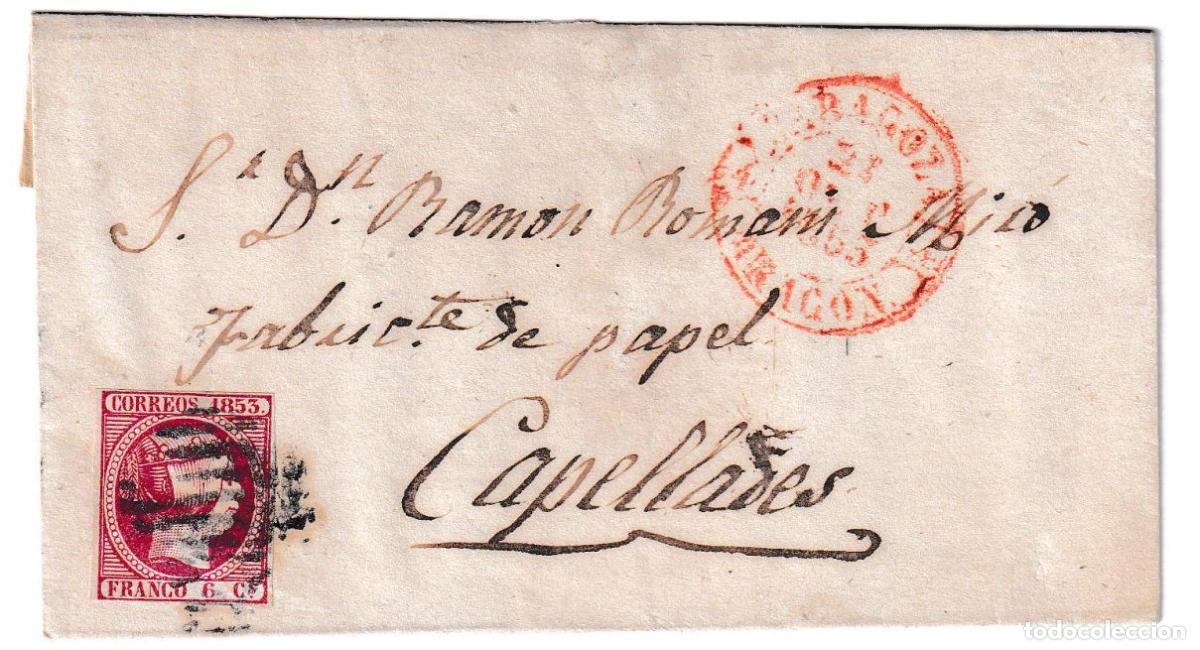 S.ʳ Dⁿ. Ramon Romani Miró
Fabric.te de papel
Capellades
ZARAGOZA
21
ARAGON.
CORREOS 1853.
FRANCO 6 C.ˢ
todocoleccion